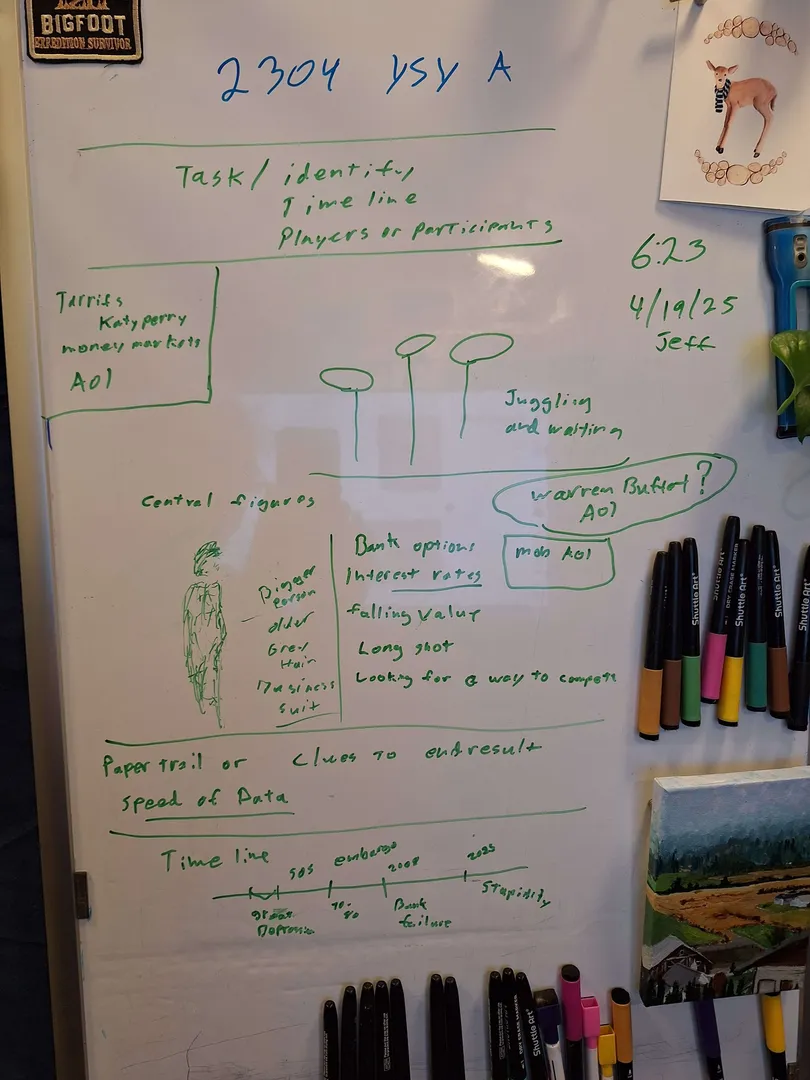 BIGFOOT
EXPEDITION SURVIVOR
2304 YSY A
Task/ identify
Time line
Players or participants
6:23
4/19/25
Jeff
Tarrifs
Katy perry
money markets
AOl
Juggling
and waiting
Central figures
Warren Buffot?
AOl
Bank options
mob AOl
Interest rates
falling Value
Long shot
Looking for a way to compete
Bigger
person
older
Grey
Hair
Business
suit
Paper trail or Clues to end result
Speed of Data
Time line
50s
embargo
2008
2025
great
Depression
70-80
Bank
failure
Stupidity
Shuttle Art
DRY ERASE MARKER
Shuttle Art
Shuttle Art
Shuttle Art
Shuttle Art
Shuttle Art